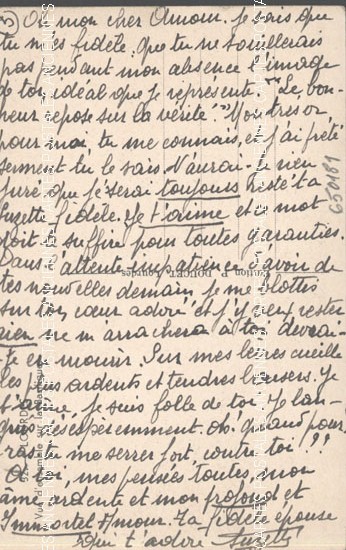 5) Oh mon cher Amour. je sais que
tu m'es fidèle. Que tu ne souillerais
pas pendant mon absence l'image
de ton idéal que je représente. "Le bon-
heur repose sur la vérité." Mon tresor,
pour moi, tu me connais, et j'ai prêté
serment tu le sais. N'aurai-je rien
juré que je serai toujours resté ta
Suzette fidèle. Je t'aime et ce mot
doit suffire pour toutes garanties.
Dans l'attente impatiente d'avoir de
tes nouvelles demain je me blottis
sur ton cœur adoré et j'y veux rester
rien ne m'arrachera à toi devrai-
je en mourir. Sur mes lèvres cueille
les plus ardents et tendres baisers. Je
t'aime, je suis folle de toi. Je lan-
guis désespéremment oh! quand pour-
ras tu me serrer fort contre toi!!
A toi, mes pensées toutes, mon
âme ardente et mon profond et
Immortel Amour. Ta fidèle épouse
Qui t'adore Suzette
650181